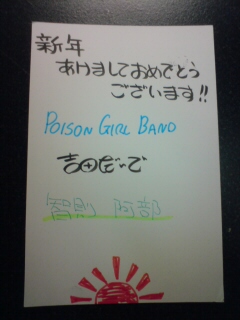 新年
あけましておめでとう
ございます!!
POISON GIRL BAND
吉田だいで
智則 阿部